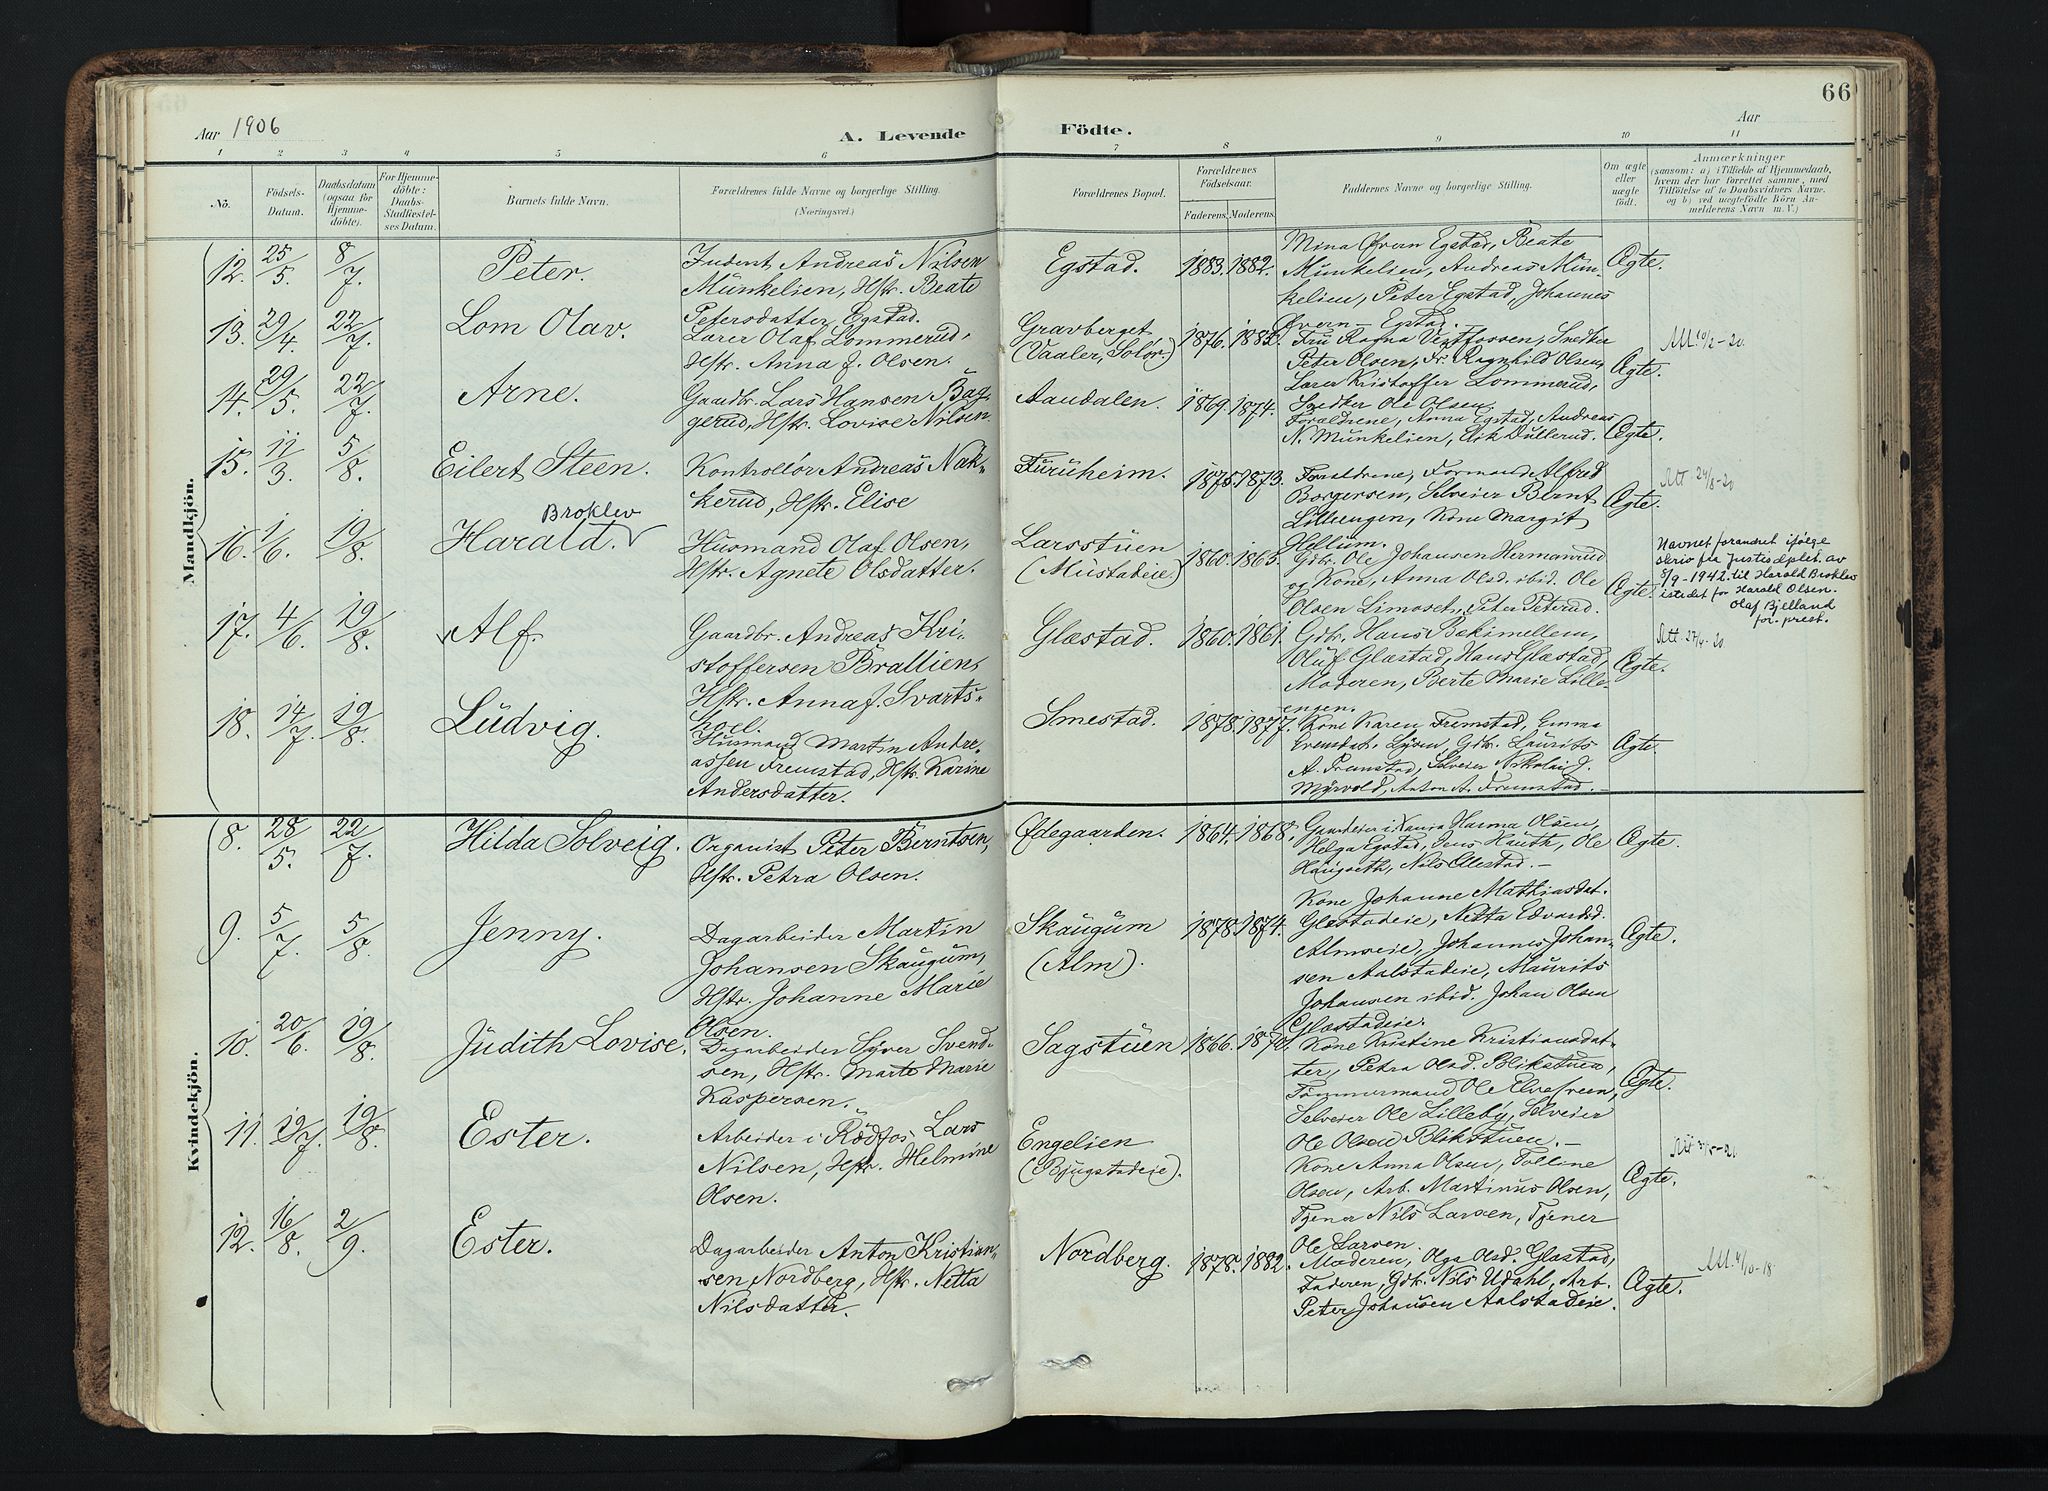 66
Aar 1906
A. Levende Födte.
Aar
1 2 3 4 5 6 7 8 9 10 11
No.
Födsels-Datum.
Daabsdatum (ogsaa for Hjemme-döbte).
For Hjemme-döbte: Daabs-Stadfæstel-ses Datum.
Barnets fulde Navn.
Forældrenes fulde Navne og borgerlige Stilling. (Næringsvei.)
Forældrenes Bopæl.
Forældrenes Födselsaar.
Faderens. Moderens.
Faddernes Navne og borgerlige Stilling.
Om ægte eller uægte födt.
Anmærkninger
(saasom: a) i Tilfælde af Hjemmedaab, hvem der har forrettet samme, med Tilföielse af to Daabsvidners Navne, og b) ved uægtefödte Börn An-melderens Navn m. V.)
Mandkjön.
12. 25/5 8/7 Peter.
Andreas Nilsen
Munkelien, Hstr. Beate
Petersdatter, Egstad.
Egstad. 1883. 1882.
Mina Øvern Egstad, Beate
Munkelien, Andreas Mun-
kelien, Peter Egstad, Johannes
Øvern - Egstad.
Ægte.
13. 29/4 22/7 Lom Olav.
Lærer Olaf Lommerud,
Hstr. Anna f. Olsen.
Gravberget
(Vaaler, Solør)
1876. 1882
Fru Ragna Vestfossen, Snedker
Peter Olsen, Fr. Ragnhild Olsen,
Lærer Kristoffer Lommerud,
Snedker Ole Olsen.
Ægte.
Att. 10/2-20.
14. 29/5 22/7 Arne.
Gaardbr. Lars Hansen Bag-
gerud, Hstr. Lovise Nilsen.
Aandalen. 1869. 1874.
Forældrene, Anna Egstad, Andreas
N. Munkelien, Erik Dullerud.
Ægte.
15. 11/3 5/8 Eilert Steen.
Kontrollør Andreas Nak-
kerud, Hstr. Elise
Furuheim. 1875. 1873.
Forældrene, Formand Alfred
Borgersen, Selveier Bernt
Lilleengen, Kone Margit
Hellum.
Ægte.
Att. 24/8-20
16. 1/6 19/8 Harald. Broklev
Husmand Olaf Olsen,
Hstr. Agnete Olsdatter.
Larsstuen
(Mustadeie.)
1860. 1865.
Gdbr. Ole Johansen Hermanrud
og Kone, Anna Olsd. ibid. Ole
Olsen Limoset, Peter Peterud.
Ægte.
Navnet forandret ifølge
skriv fra Justisdeptet. av
8/9-1942 til Harald Broklev
istedet for Harald Olsen.
Olaf Bjelland
for. prest.
17. 4/6 19/8 Alf.
Gaardbr. Andreas Kri-
stoffersen Brallien,
Hstr. Anna f. Svarts-
hoel.
Glæstad. 1860. 1861.
Gdbr. Hans Bækimellem,
Oluf Glæstad, Hans Glæstad,
Moderen, Berte Marie Lille-
engen.
Ægte.
Att. 27/4-20
18. 14/7 19/8 Ludvig.
Husmand Martin Andre-
assen Fremstad, Hstr. Karine
Andersdatter.
Smestad. 1878. 1877.
Kone Karen Fremstad, Emma
Evensdat. Lysen, Gdbr. Laurits
A. Fremstad, Selveier Nikolai J.
Myrvold, Anton A. Fremstad. -
Ægte.
Kvindekjön.
8. 28/5 22/7 Hilda Solveig.
Organist Peter Berntsen,
Hstr. Petra Olsen.
Ødegaarden. 1864. 1868.
Hanna Olsen,
Helga Egstad, Jens Hauth, Ole
Haugseth, Nils Ellestad. -
Ægte.
9. 5/7 5/8 Jenny.
Dagarbeider Martin
Johansen Skaugum,
Hstr. Johanne Marie
Olsen.
Skaugum
(Alm).
1878. 1874.
Kone Johanne Mathiasdat.
Glæstadeie, Netta Edvardsd.
Almseie, Johannes Johan-
sen Aalstadeie, Maurits
Johansen ibid. Johan Olsen
Glæstadeie.
Ægte.
10. 20/6 19/8 Judith Lovise.
Dagarbeider Syver Svend-
sen, Hstr. Marte Marie
Kaspersen.
Sagstuen 1866.
Kone Kristine Kristiansdat-
ter, Petra Olsd. Blikstuen,
Tømmermand Ole Elvesveen,
Selveier Ole Lilleby, Selveier
Ole Olsen Blikstuen. -
Ægte.
11. 19/7 19/8 Ester.
Arbeider i Rødfos Lars
Nilsen, Hstr. Helmine
Olsen.
Engelien
(Bjugstadeie).
Kone Anna Olsen, Tolline
Olsen, Arb. Martinus Olsen,
Tjener Nils Larsen, Tjener
Ole Larsen.
Ægte.
12. 16/8 2/9 Ester.
Dagarbeider Anton Kristian-
sen Nordberg, Hstr. Netta
Nilsdatter.
Nordberg. 1878. 1882.
Moderen, Olga Olsd. Glæstad,
Faderen, Gdbr. Nils Udahl, Arb.
Peter Johansen Aalstadeie.
Ægte.
Att. 4/10-18